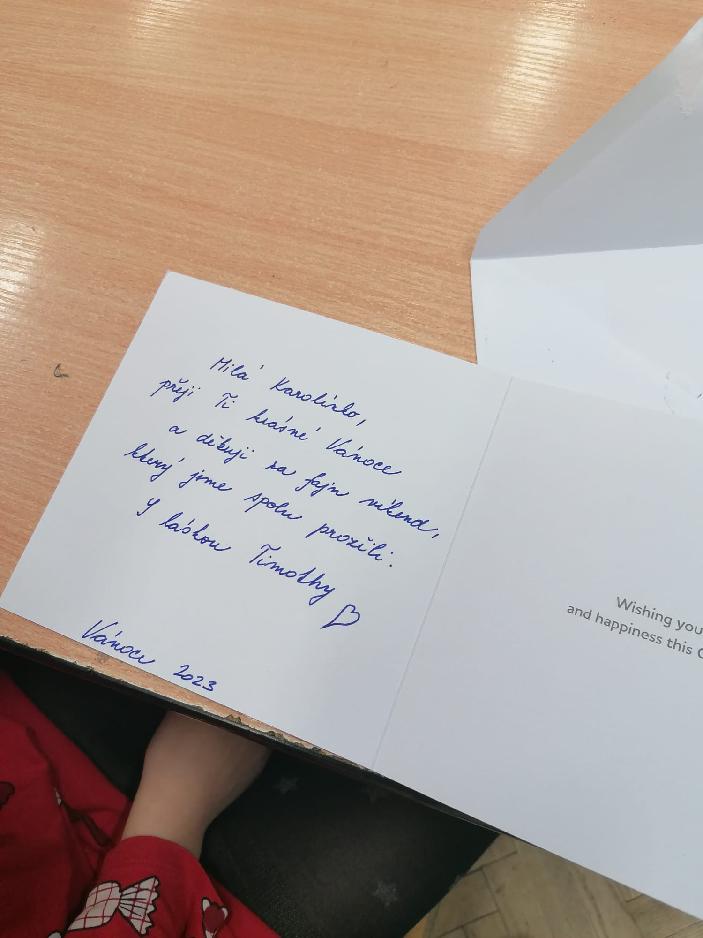 Milá Karolínko,
přeji Ti krásné Vánoce
a děkuji za fajn víkend,
který jsme spolu prožili.
S láskou Timothy ♡
Vánoce 2023
Wishing you
and happiness this